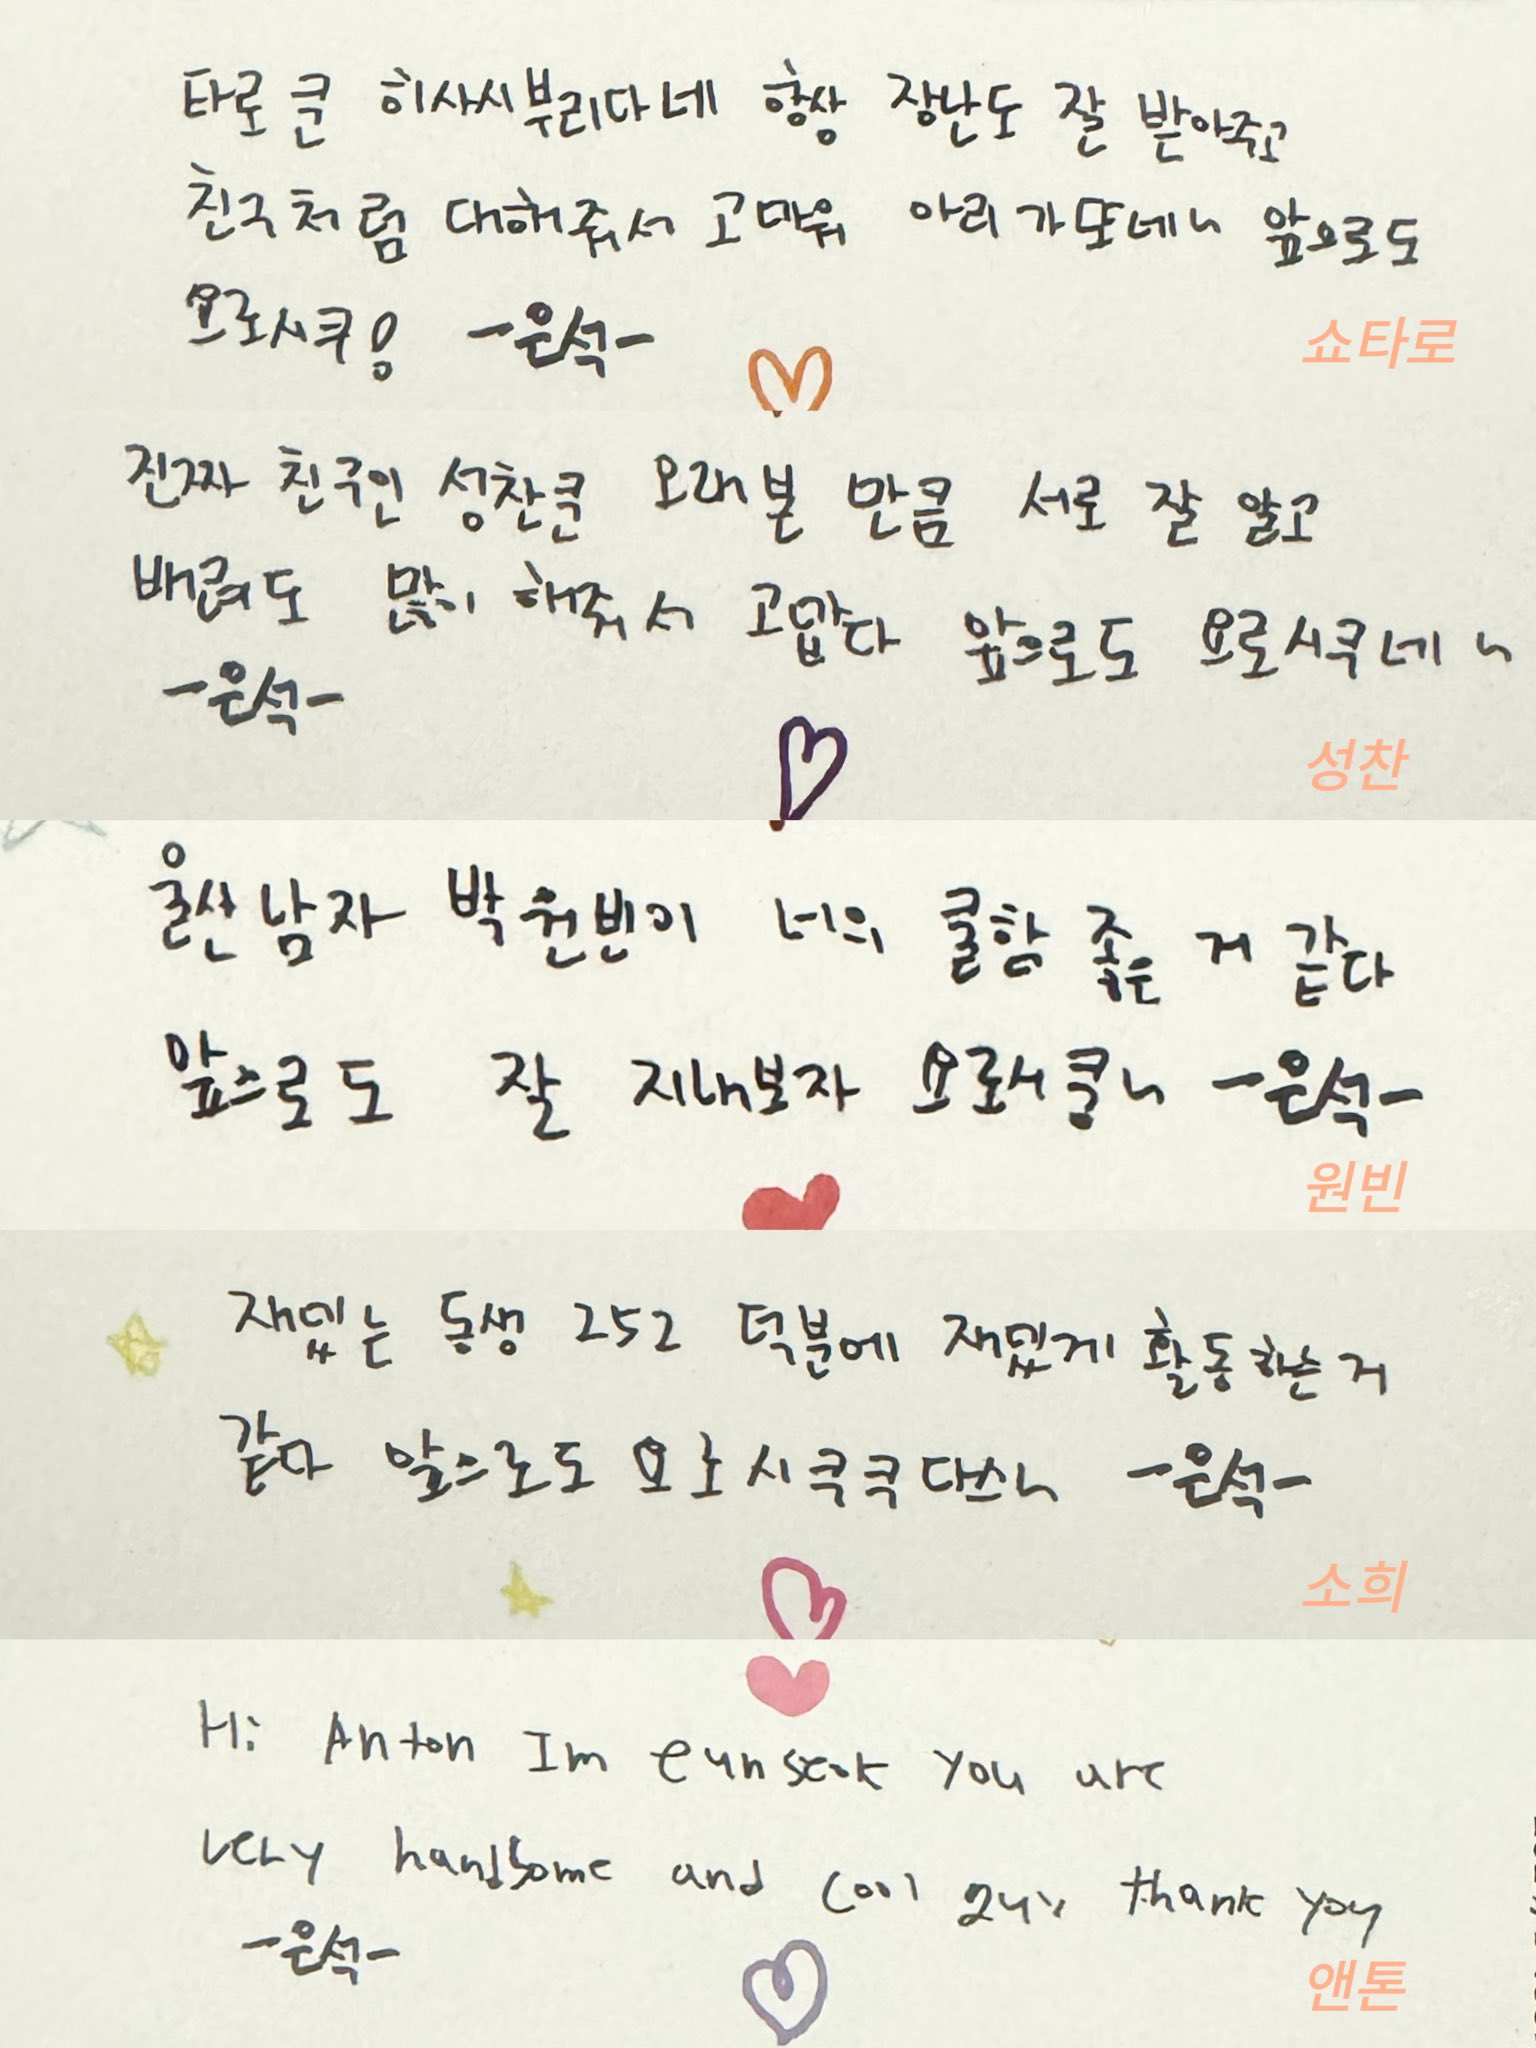 타로쿤 히사시부리다네 항상 장난도 잘 받아주고
친구처럼 대해줘서 고마워 아리가또네~ 앞으로도
요로시쿠!  -은석-
쇼타로
진짜 친구인 성찬쿤 오래본 만큼 서로 잘 알고
배려도 많이 해줘서 고맙다 앞으로도 요로시쿠네~
-은석-
성찬
울산남자 박원빈이 너의 쿨함 좋은 거 같다
앞으로도 잘 지내보자 요로시쿨~ -은석-
원빈
재밌는 동생 252 덕분에 재밌게 활동하는거
같다 앞으로도 요로시쿠쿠다스~ -은석-
소희
Hi Anton Im eunseok you are
very handsome and cool guy thank you
-은석-
앤톤